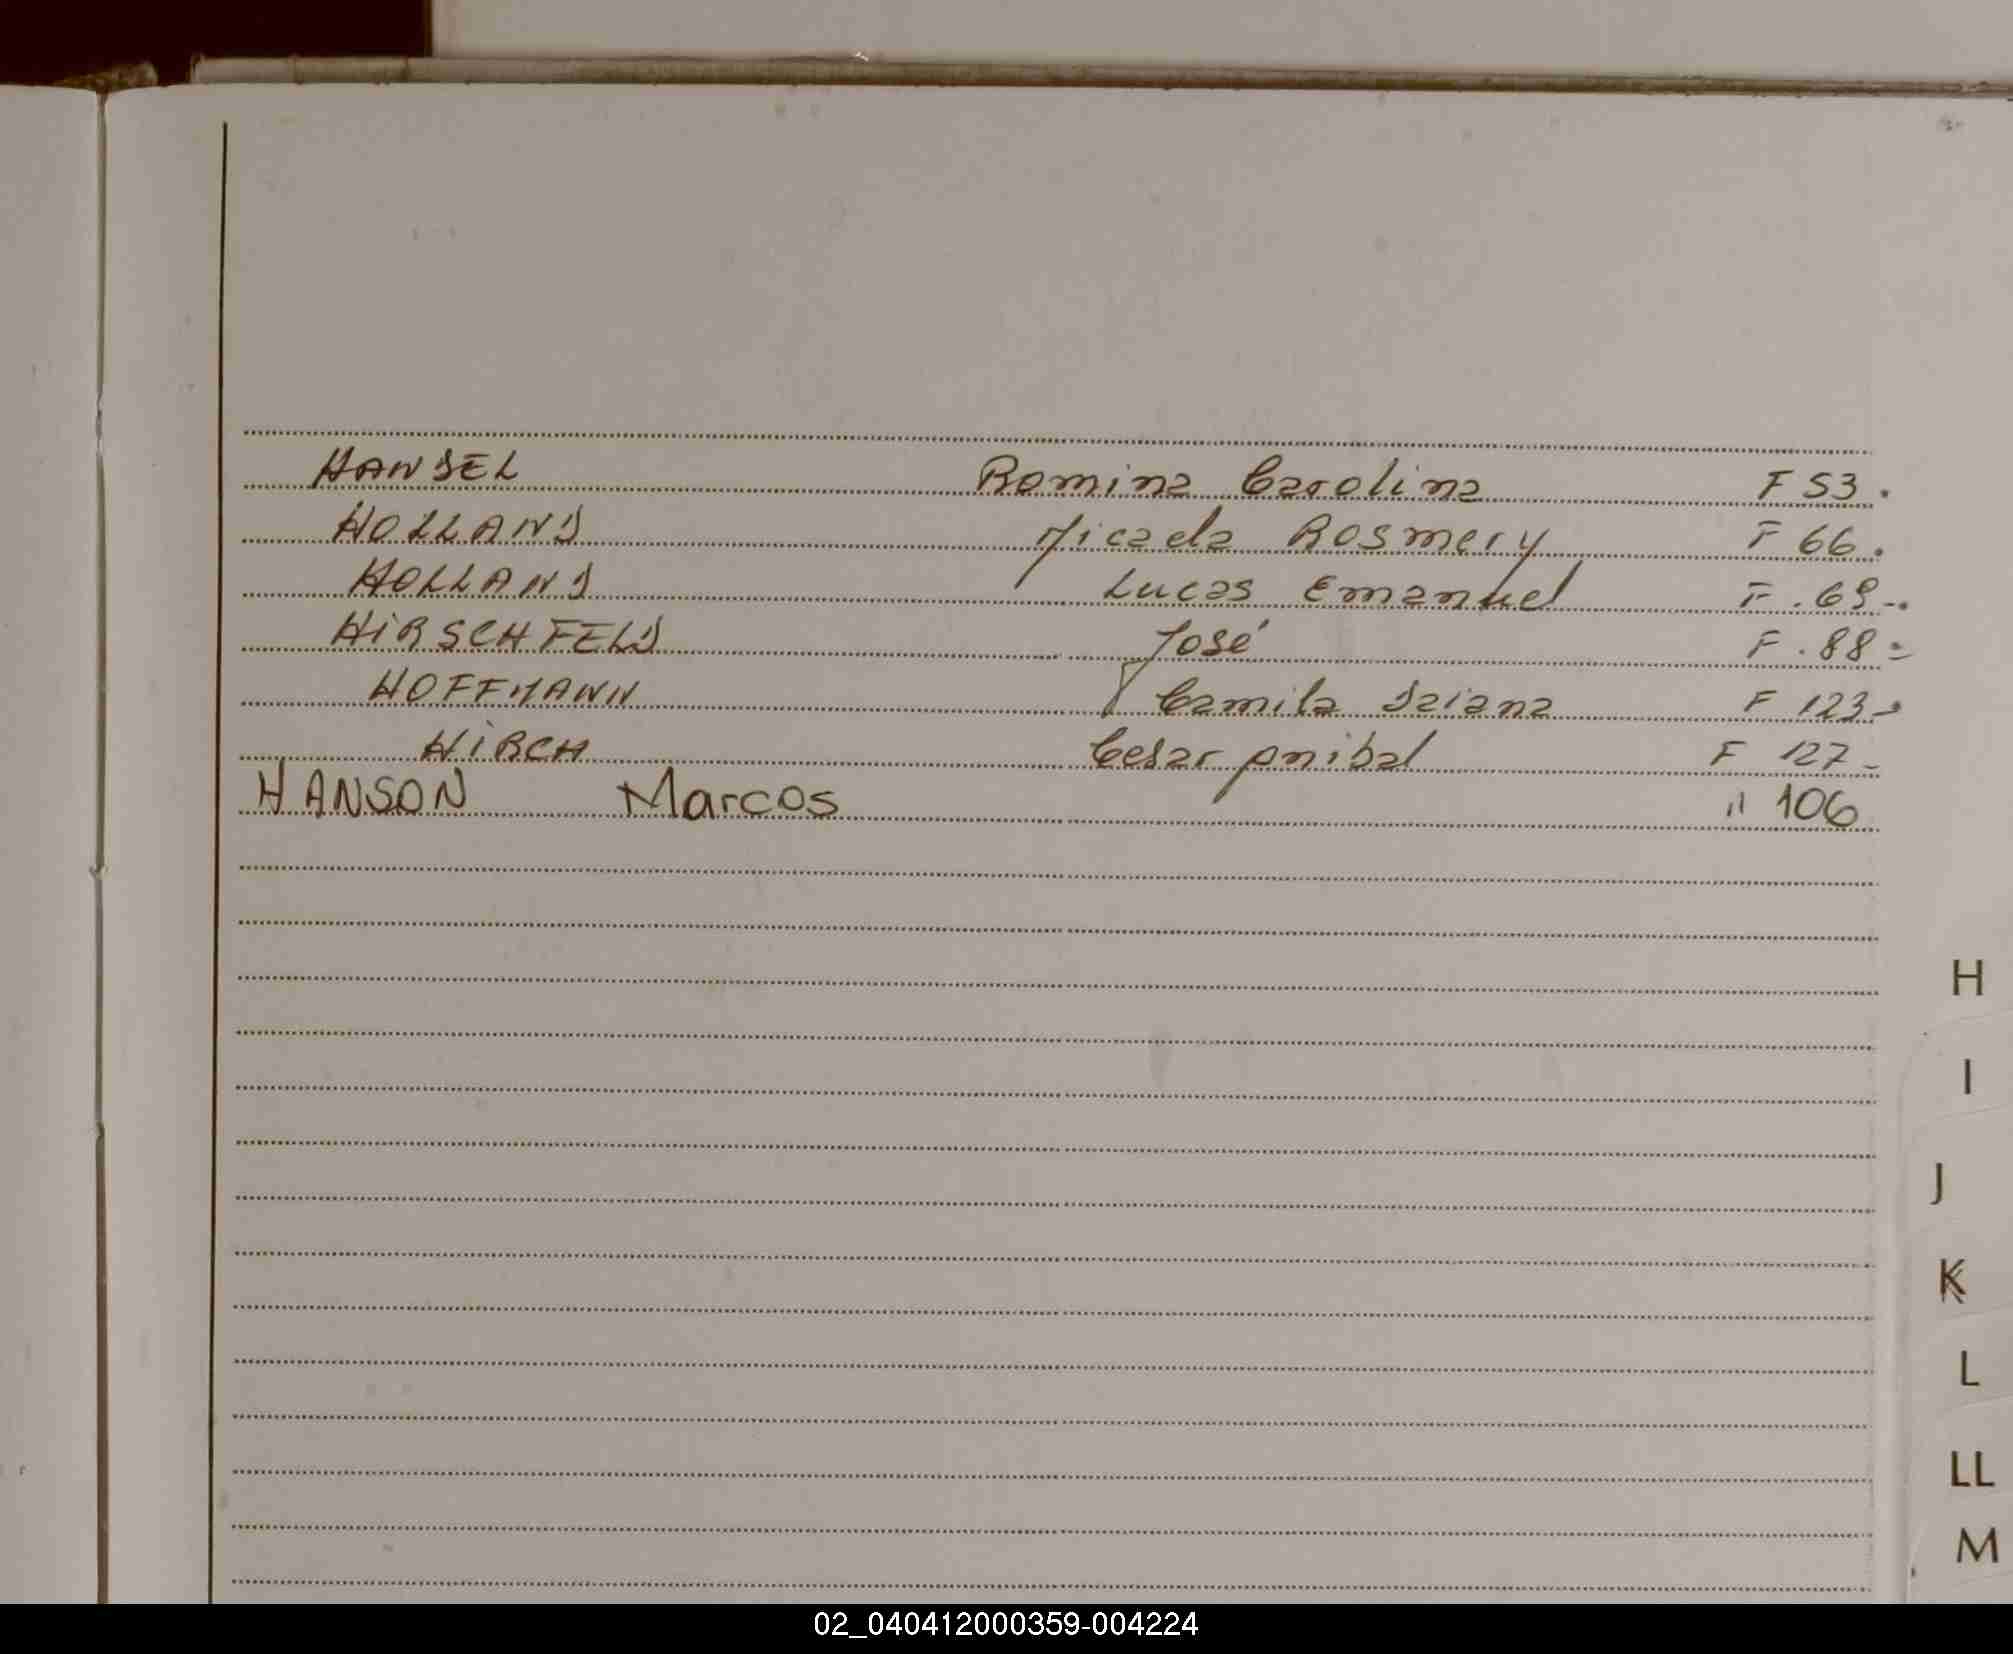 HANSEL Romina Carolina F 53.
HOLLAND Micaela Rosmery F 66.
HOLLAND Lucas Emanuel F. 69-.
HIRSCHFELD José F. 88=
HOFFMANN Camila Daiana F 123-
HIRCH Cesar Anibal F 127-
HANSON Marcos " 106
H
I
J
K
L
LL
M
02_040412000359-004224